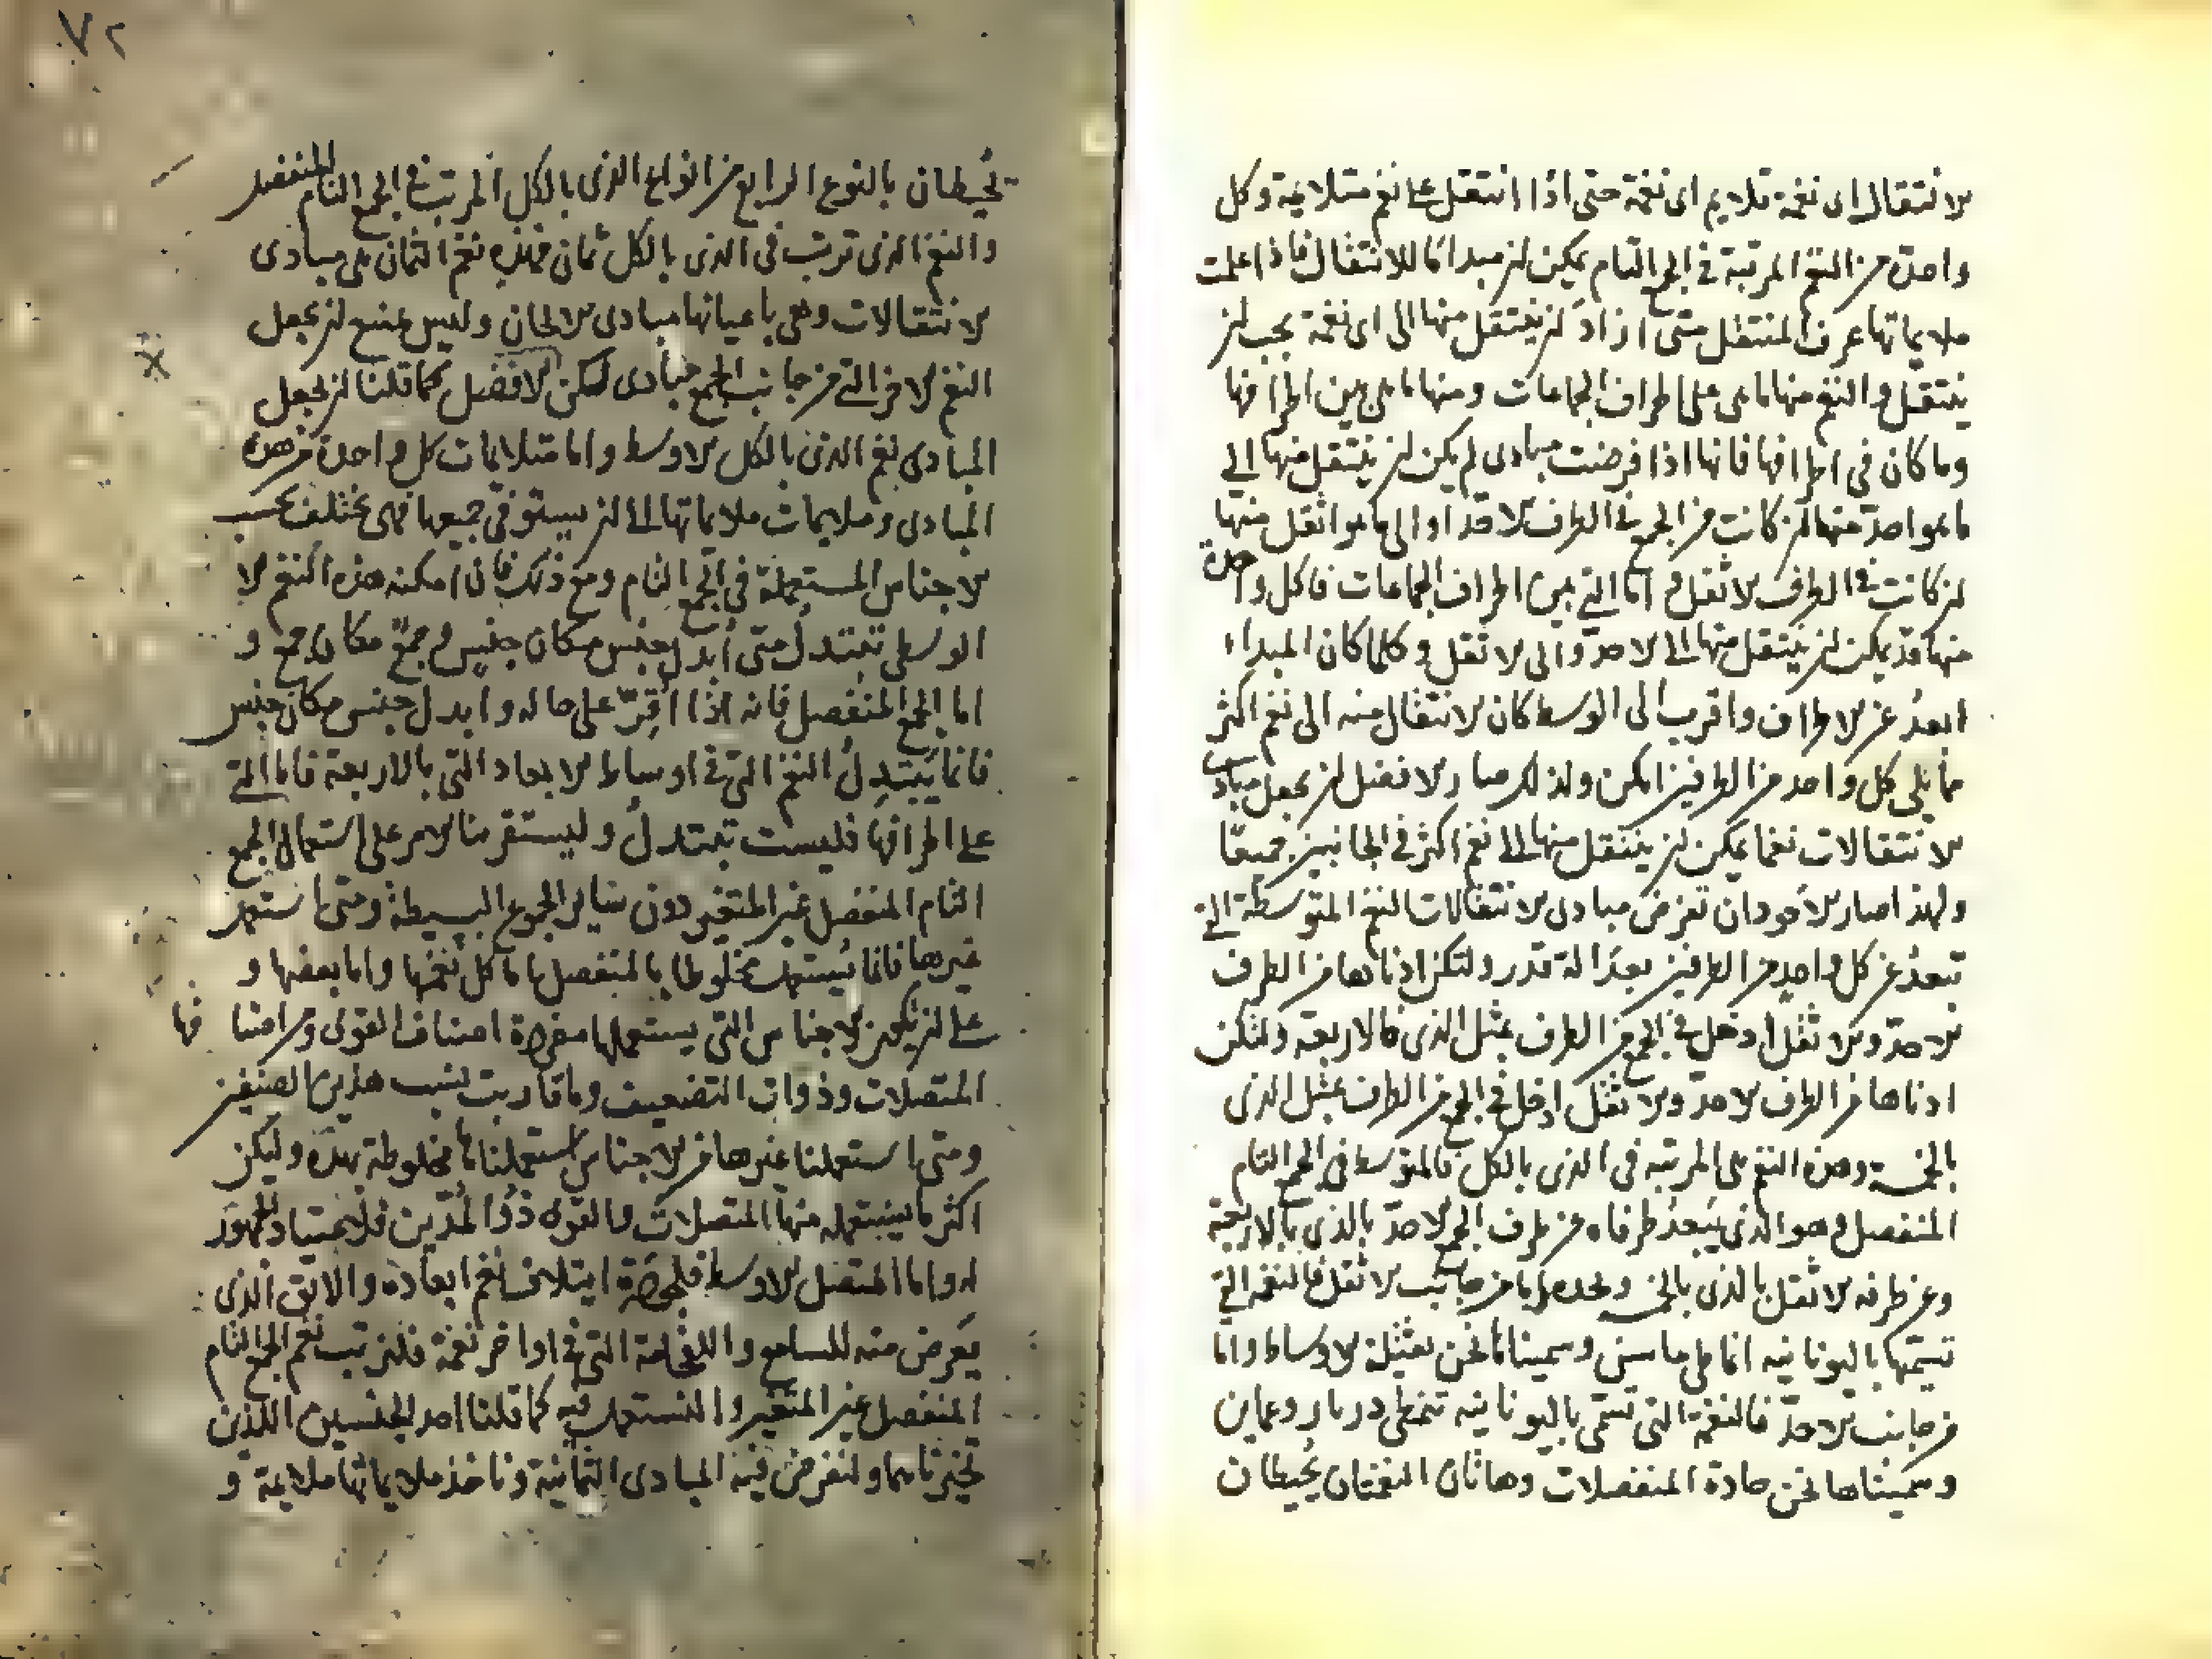 الانتقال اى نغمة تلايم اى نغمة حتى اذا انتقل على نغم متلايمة وكل
واحدة من النغم المرتبة فى الجمع التام يمكن ان مبدا ما للانتقال فاذا علمت
ملايماتها عرف المنتقل متى اراد ان ينتقل منها الى اى نغمة يجب ان
ينتقل والنغم منها ما هى على اطراف الجماعات ومنها ما هى بين اطرافها
وما كان فى اطرافها فانها اذا فرضت مبادى لم يكن ان ينتقل منها الى
ما هو احدّ منها ان كانت من الجمع فى الطرف الاحد او الى ما هو اثقل منها
ان كانت فى الطرف الاثقل و اما التى بين اطراف الجماعات فا كل واحدة
منها قد يمكن ان ينتقل منها الى الاحدّ والى الاثقل وكلما كان المبداء
ابعدُ عن الاطراف واقرب الى الوسط كان الانتقال منه الى نغم اكثر
مما يلى كل واحد من الطرفين امكن ولذلك صار الافضل ان يجعل مبادى
الانتقالات نغما يمكن ان ينتقل منها الى نغم اكثر فى الجانبين جميعًا
ولهذا صار الاجود ان تفرض مبادى الانتقالات النغم المتوسطة التى
تبعدُ عن كل واحد من الطرفين بعدًا له قدر ولتكن ادناها من الطرف
الاحدّ والاثقل ادخل فى الجمع من الطرف بمثل الذى بالاربعة ولتكن
ادناها من الطرف الاحدّ والاثقل ادخل فى الجمع من الطرف بمثل الذى
بالخمسة وهذه النغم هى المرتبه فى الذى بالكل المتوسط فى الجمع التام
المنفصل وهو الذى يَبعدُ طرفاه عن طرف الجمع الاحدّ بالذى بالاربعة
وعن طرفه الاثقل بالذى بالخمسة ويحده اما من جانب الاثقل فالنغمة التى
تسمّيها باليونانيه اناطى ماسن وسمينا ها نحن بثقيلة الاوساط واما
من جانب الاحدّ فالنغمة التى تسمّى باليونانيه
وسميناها نحن حادة المنفصلات وهاتان النغمتان يُحيطان
٧٢
تُحيطان بالنوع الرابع من انواع الذى بالكل المرتب فى الجمع التام المنفصل
والنغم الذى ترتب فى الذى بالكل ثمان فهذه نغم الثمان هى مبادى
الانتقالات وهى باعيانها مبادى الالحان وليس يمتنع ان يجعل
النغم الاخر التى من جانب الجمع مبادى لكن الافضل كما قلنا ان يجعل
المبادى نغم الذى بالكل الاوسط واما متلايمات كل واحدة من هذه
المبادى وملايمات ملايماتها الى ان يستوفى جميعها فهى تختلف بحسب
الاجناس المستعملة فى الجمع التام ومع ذلك فان امكنه هذه النغم الا
الوسطى تتبدلُ متى اُبدل جنس مكان جنس و جمعٌ مكان جمع و
اما الجمع المنفصل فانه اذا اُقِرّ على حاله وابدل جنس مكان جنس
فانما يتبدلُ النغم التى فى اوساط الابعاد التى بالاربعة فاما التى
على اطرافها فليست تتبدلُ وليستقر منا الامر على استعمال الجمع
التام المنفصل غير المتغير دون سائر الجموع البسيطة ومتى استعمل
غيرها فانما يُستعمل مخلوطا بالمنفصل اما كل نغمها واما بعضها و
على ان يكون الاجناس التى يستعملها مفردة اصناف القوى و اصنافها
المتصلات وذوات التضعيف وما قاربت نسب هذين الصنفين
ومتى استعملنا غيرها من الاجناس استعملناها مخلوطة بهذه وليكن
اكثر ما يستعمله منها المتصلات والقوى ذو المدّين فلاعتياد الجمهور
له واما المتصل الاوسط ايتلاف نغم ابعاده والانق الذى
يَعرض منه للسامع و التى فى اواخر نغمة فلنرتب نغم الجمع التام
المنفصل غير المتغير والنستعمل فيه كما قلنا احد الجنسين اللذين
تخيرناهما ولنفرض فيه المبادى الثمانية وناخذ ملايماتها ملايمة و